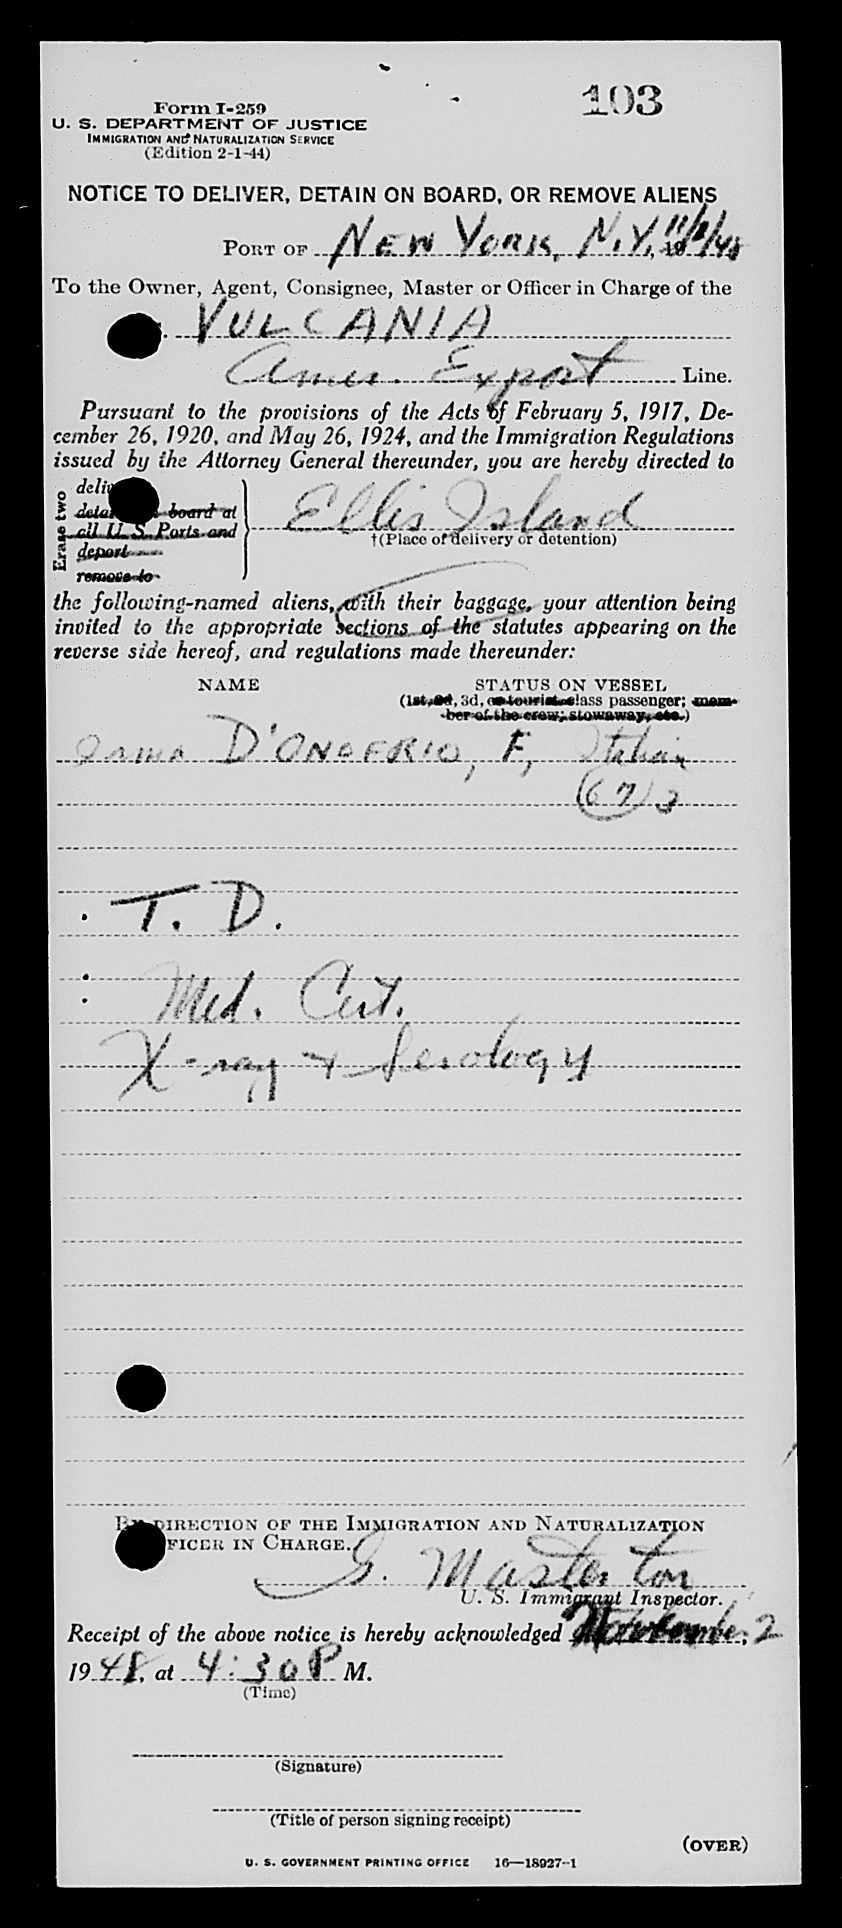 103
Form I-259
U. S. DEPARTMENT OF JUSTICE
IMMIGRATION AND NATURALIZATION SERVICE
(Edition 2-1-44)
NOTICE TO DELIVER, DETAIN ON BOARD, OR REMOVE ALIENS
PORT OF NEW YORK, N.Y., 19 11/2/48
To the Owner, Agent, Consignee, Master or Officer in Charge of the
VULCANIA
Amer. Export Line.
Pursuant to the provisions of the Acts of February 5, 1917, De-
cember 26, 1920, and May 26, 1924, and the Immigration Regulations
issued by the Attorney General thereunder, you are hereby directed to
Erase two
board at
all U. S. Ports and
deport
remove to
Ellis Island
†(Place of delivery or detention)
the following-named aliens, with their baggage, your attention being
invited to the appropriate sections of the statutes appearing on the
reverse side hereof, and regulations made thereunder:
NAME
STATUS ON VESSEL
(1st, 2d, 3d, or tourist class passenger; mem-
ber of the crew; stowaway, etc.)
D'ONOFRIO, F, Italian
(67) 3
T. D.
Med. Cert.
X-ray + Serology
DIRECTION OF THE IMMIGRATION AND NATURALIZATION
IN CHARGE.
G. Masterton
U. S. Immigrant Inspector.
Receipt of the above notice is hereby acknowledged November 2,
1948, at 4:30 P M.
(Time)
(Signature)
(Title of person signing receipt)
(OVER)
U. S. GOVERNMENT PRINTING OFFICE 16—18927-1